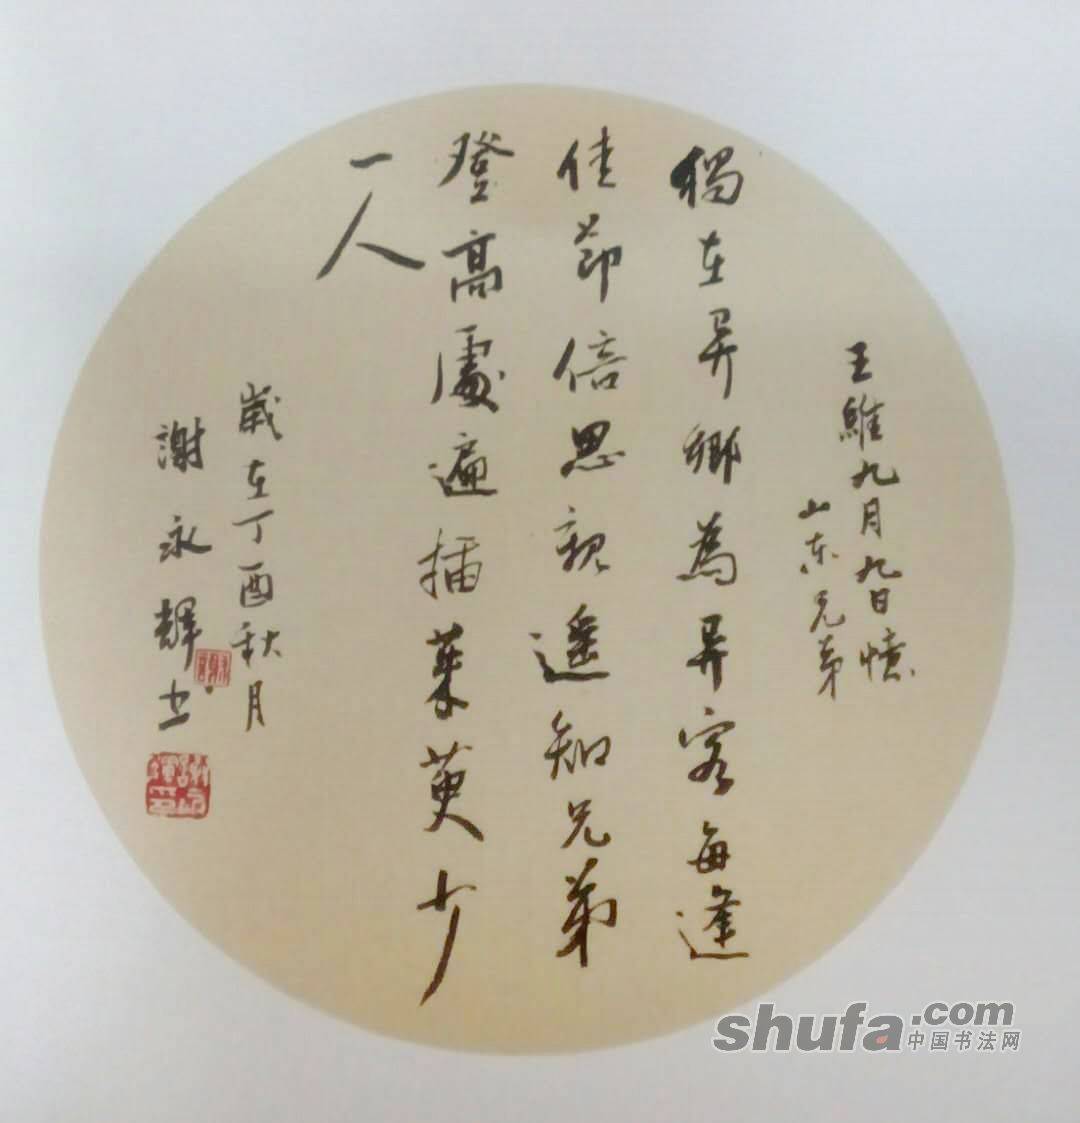 王維九月九日憶
山东兄弟
獨在异鄉為异客每逢
佳節倍思親遥知兄弟
登高處遍插茱萸少
一人
歲在丁酉秋月
謝永輝书
shufa.com
中国书法网